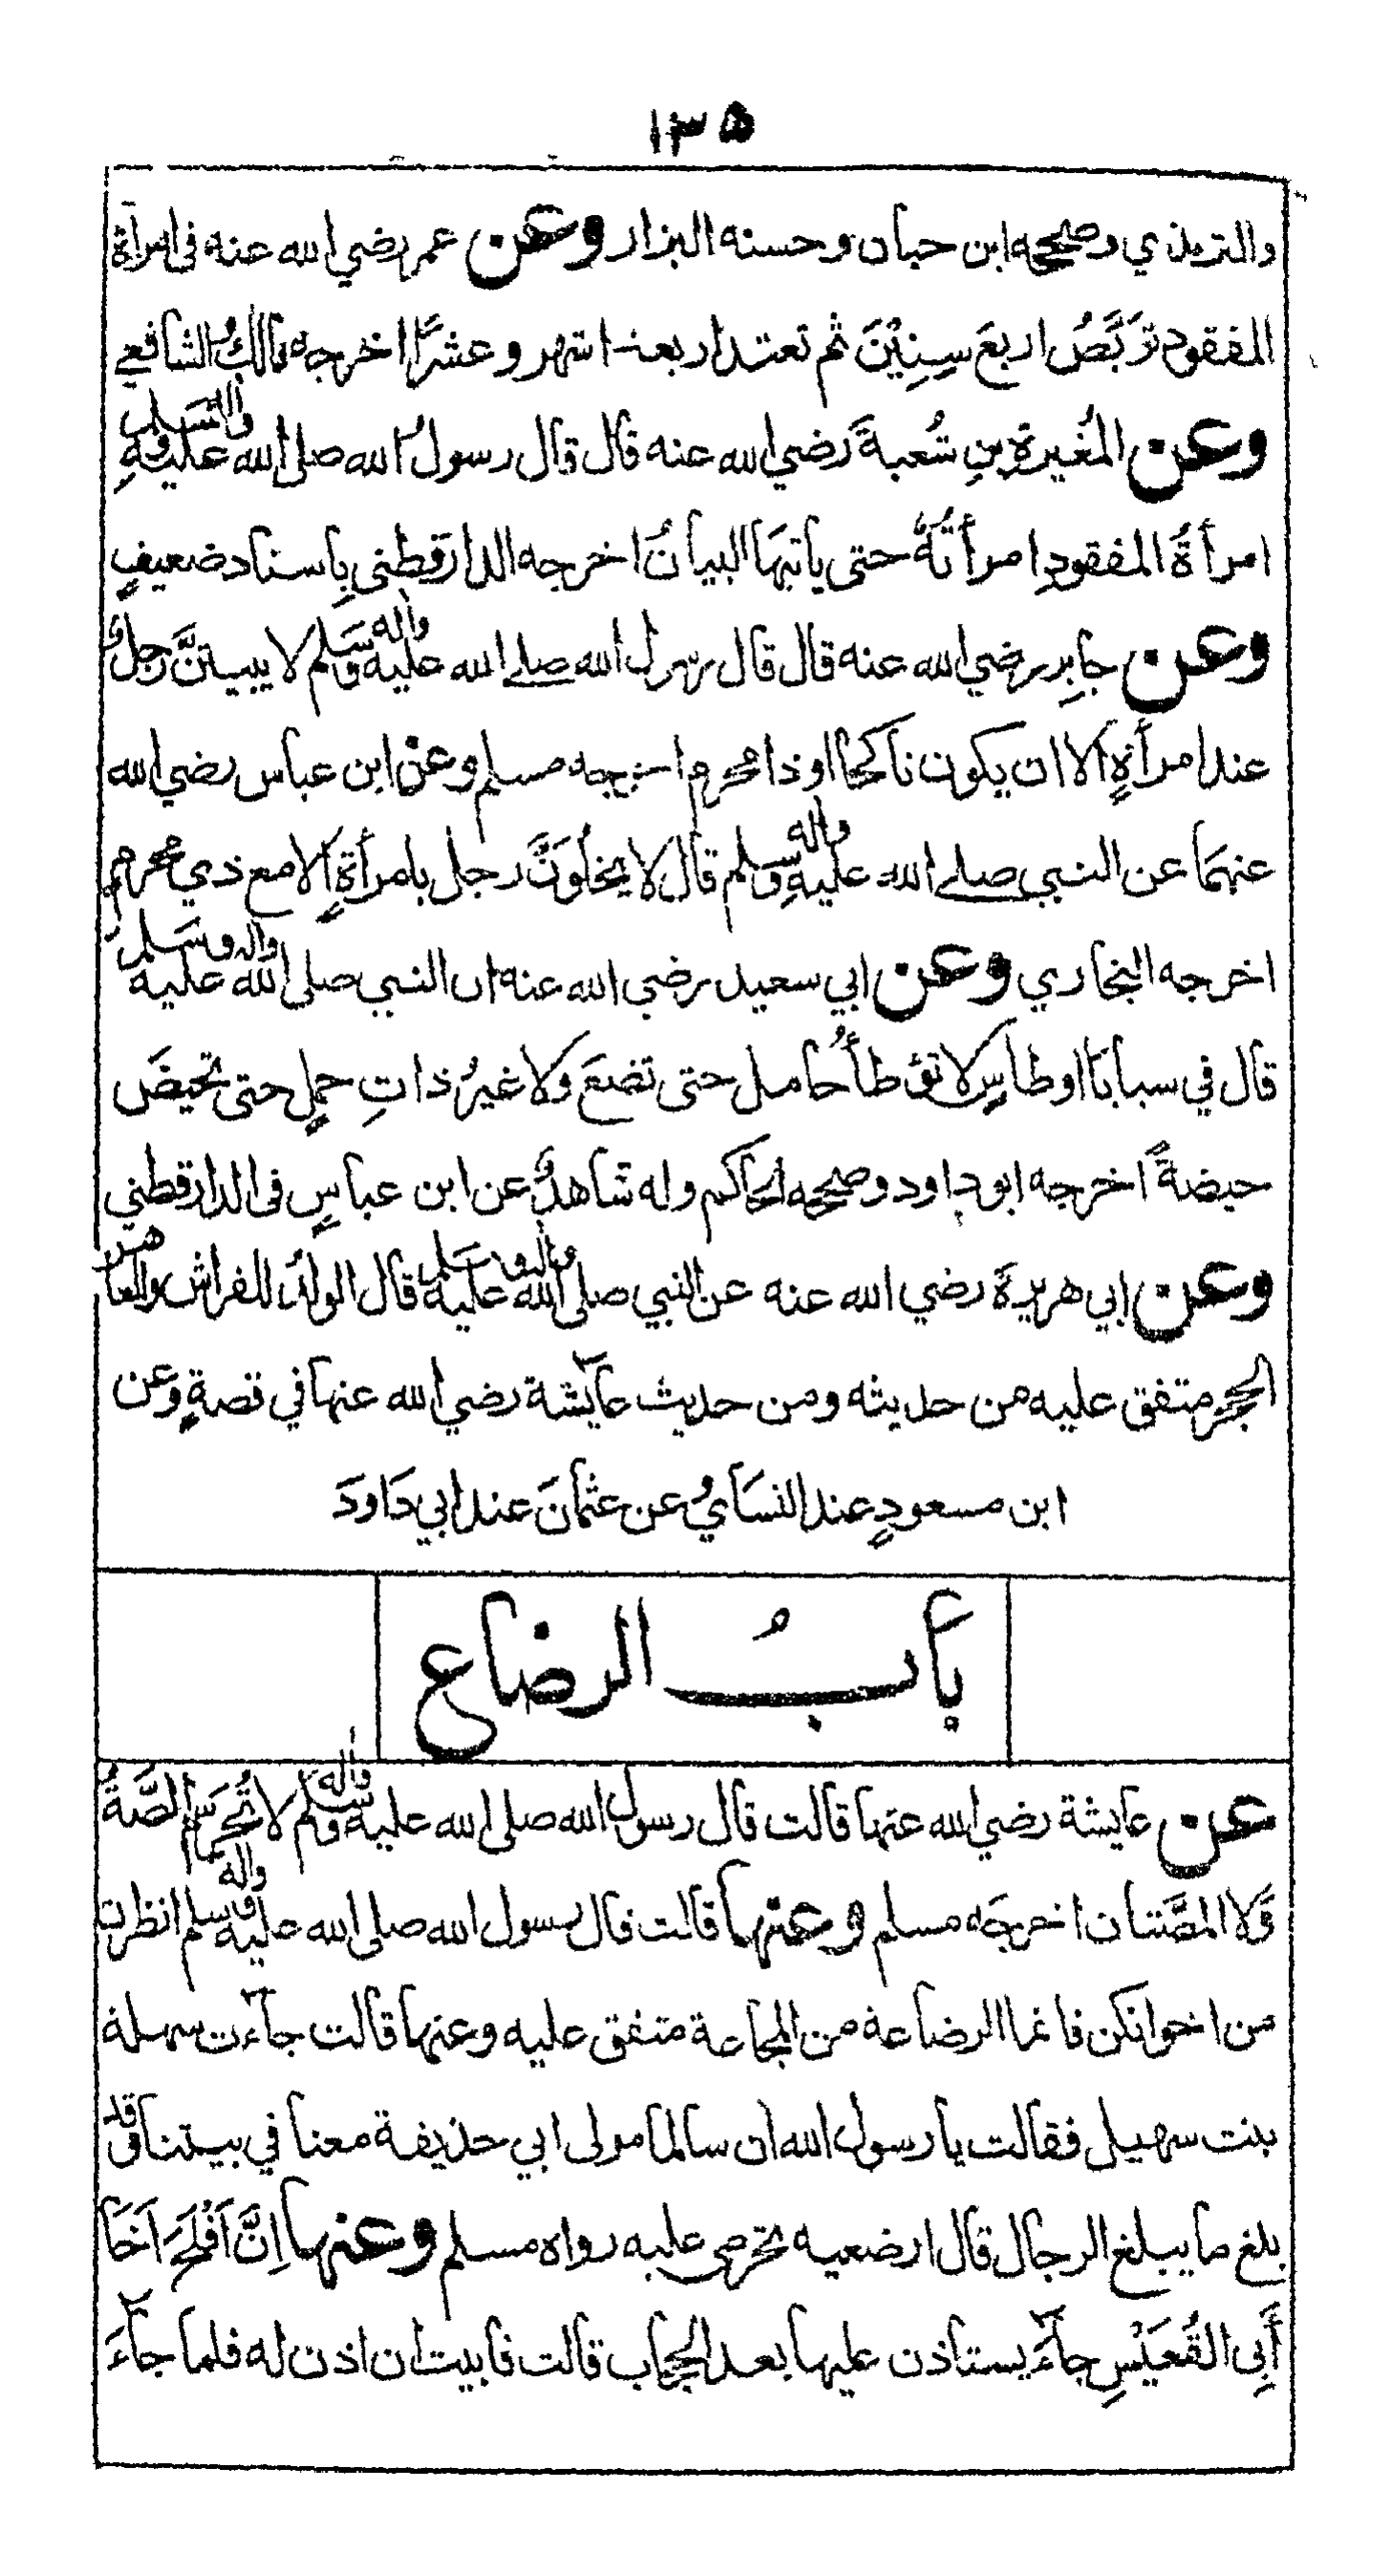 ١٣٥
والترمذي وصححه ابن حبان وحسنه البزار وعن عمر رضي الله عنه في امرأة
المفقود تَرَبَّصُ اربعَ سِنِيْنَ ثم تعتد اربعة اشهر وعشرًا اخرجه مالكٌ والشافعي
وعن المُغيرةِ بنِ شُعبةَ رضي الله عنه قال قال رسولُ الله صلى الله عليه وآله وسلم
امرأةُ المفقودِ امرأتُهُ حتى ياتيَهَا البيانُ اخرجه الدارَقطني بِاسناد ضعيفٍ
وعن جابِر رضي الله عنه قال قال رسول الله صلى الله عليه وآله وسلم لا يبيتنَّ رجلٌ
عند امرأةٍ الا ان يكون ناكحًا او ذا محرم اخرجه مسلم وعن ابن عباس رضي الله
عنهمَا عن النبي صلى الله عليه وآله وسلم قال لا يخلُوَنَّ رجل بامرأةٍ الا مع ذي محرم
اخرجه البخاري وعن ابي سعيد رضي الله عنه ان النبي صلى الله عليه وآله وسلم
قال في سبايَا اوطاسٍ لا توُطأُ حامل حتى تضعَ ولا غيرُ ذاتِ حملٍ حتى تحيضَ
حيضةً اخرجه ابو داود وصححه الحاكم وله شاهدٌ عن ابن عباسٍ في الدارقطني
وعن ابي هريرةَ رضي الله عنه عن النبي صلى الله عليه وآله وسلم قال الولدُ للفراش وللعاهر
الحجر متفق عليه من حديثه ومن حديث عايشة رضي الله عنها في قصةٍ وعن
ابن مسعودٍ عند النسَايُ عن عثمانَ عند ابي دَاودَ
بابُ الرضاع
عن عايشة رضي الله عنها قالت قال رسول الله صلى الله عليه وآله وسلم لا تُحرمُ المصَّةُ
وَلا المصَّتان اخرجَه مسلم وعنها قالت قال رسول الله صلى الله عليه وآله وسلم انظرن
من اخوانكن فانما الرضاعة من المجاعة متفق عليه وعنها قالت جآءت سهلة
بنت سهيل فقالت يا رسول الله ان سالما مولى ابي حذيفة معنا في بيتنا وقد
بلغ ما يبلغ الرجال قال ارضعيه تحرمي عليه رواه مسلم وعنها اِنَّ اَفْلَحَ اَخَا
أَبِي القُعَيْسِ جآءَ يستاذن عليها بعد الحجاب قالت فابيت ان اذن له فلما جآءَ